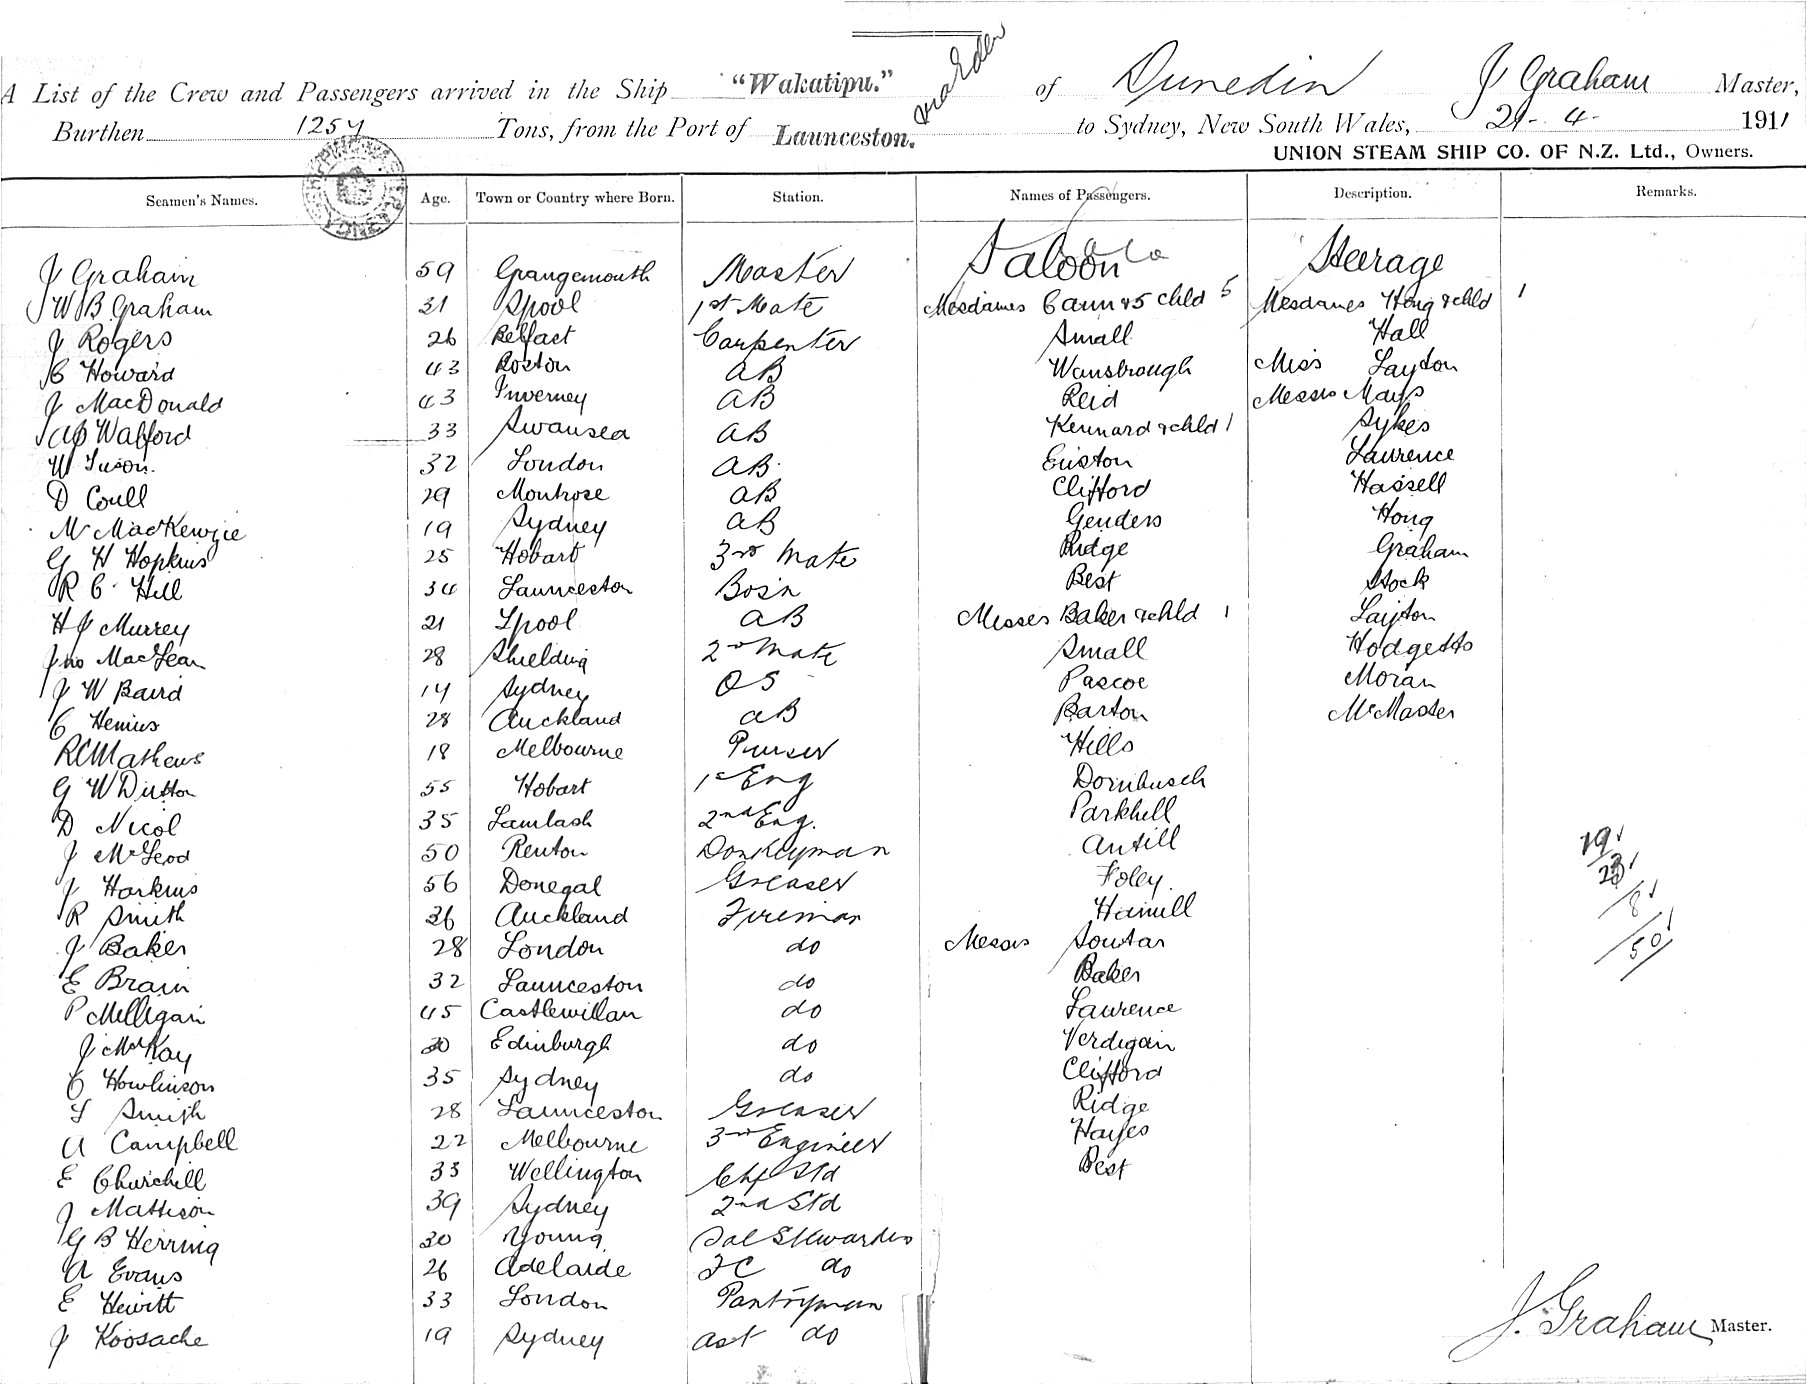 A List of the Crew and Passengers arrived in the Ship "Wakatipu." of Dunedin J Graham Master,
Burthen 1254 Tons, from the Port of Launceston. to Sydney, New South Wales, 21- 4- 1911
UNION STEAM SHIP CO. OF N.Z. Ltd., Owners.
Seamen's Names. Age. Town or Country where Born. Station. Names of Passengers. Description. Remarks.
Saloon Steerage
J Graham 59 Grangemouth Master
W B Graham 31 Lpool 1st Mate Mesdames Cann & 5 chld 5 Mesdames Hong & chld 1
J Rogers 26 Belfast Carpenter Small Hall
C Howard 43 Boston AB Wansbrough Miss Layton
J MacDonald 43 Inverney AB Reid Messrs Mays
Walford 33 Swansea AB Kennard & chld 1 Sykes
W Tuson. 32 London AB Euston Laurence
D Coull 29 Montrose AB Clifford Hassell
M MacKenzie 19 Sydney AB Genders Hong
G H Hopkins 25 Hobart 3rd Mate Ridge Graham
R C Hill 34 Launceston Bosn Best Stock
H J Murrey 21 Lpool AB Misses Baker & chld 1 Layton
Jno MacLean 28 Shielding 2nd Mate Small Hodgetts
J W Baird 14 Sydney OS Pascoe Moran
C Hemus 28 Auckland AB Barton McMaster
R C Mathews 18 Melbourne Purser Hills
G W Dutton 55 Hobart 1st Eng Dornbusch
D Nicol 35 Lamlash 2nd Eng. Parkhill
J McLeod 50 Renton Donkeyman Antill 19
J Harkins 56 Donegal Greaser Foley 23
R Smith 26 Auckland Fireman Hamill 8
J Baker 28 London do Messrs Soutar 50
E Brain 32 Launceston do Baker
P Milligan 45 Castlewillan do Laurence
J McKay 30 Edinburgh do Verdigan
C Howlinson 35 Sydney do Clifford
L Smith 28 Launceston Greaser Ridge
A Campbell 22 Melbourne 3rd Engineer Hayes
E Churchill 33 Wellington Chf Std Best
J Mattison 39 Sydney 2nd Std
G B Herring 30 Young Sal Stewardess
A Evans 26 Adelaide do
E Hewitt 33 London Pantryman
J Koosache 19 Sydney Asst do
J. Graham Master.